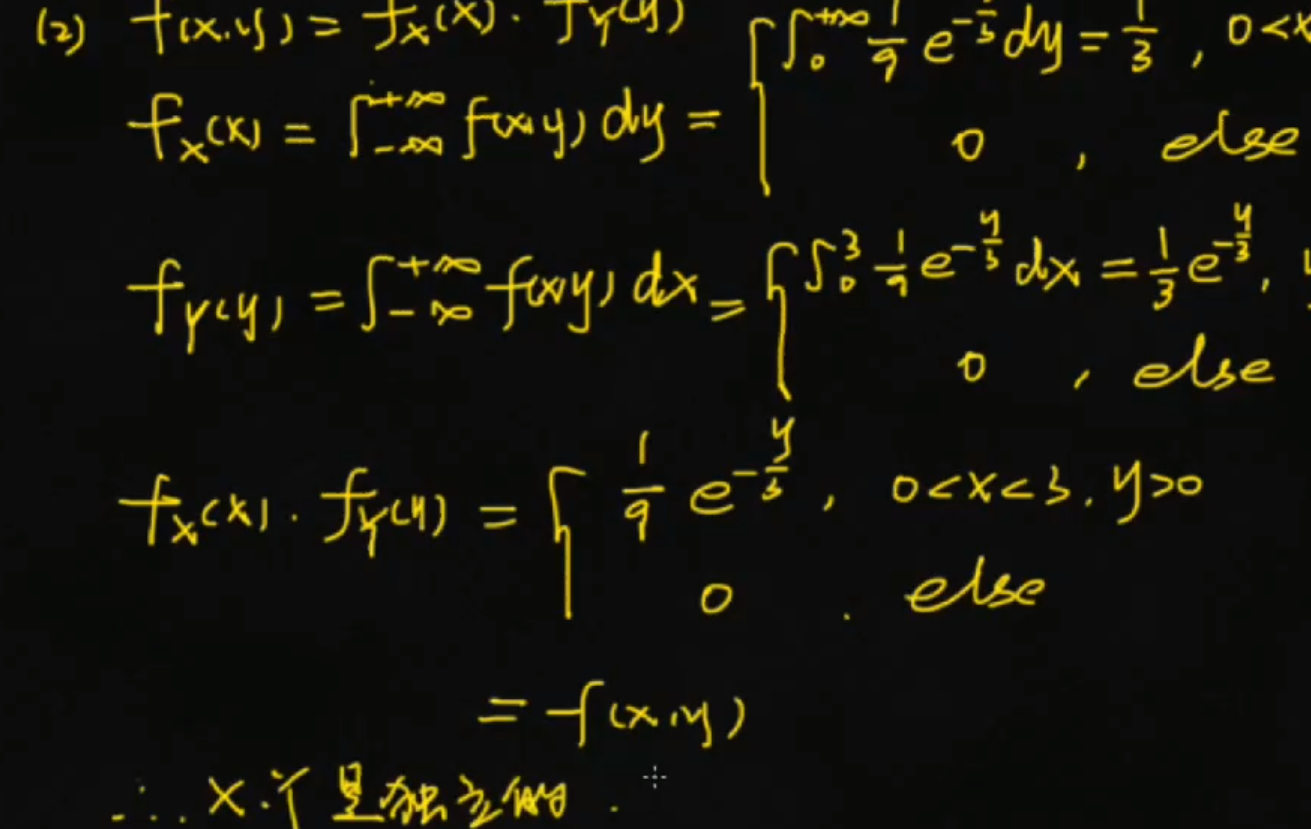 (2) f(x,y) = f_X(x) · f_Y(y)
f_X(x) = ∫_{-∞}^{+∞} f(x,y) dy = { ∫_0^{+∞} 1/9 e^{-y/3} dy = 1/3 , 0<x
0 , else
f_Y(y) = ∫_{-∞}^{+∞} f(x,y) dx = { ∫_0^3 1/9 e^{-y/3} dx = 1/3 e^{-y/3} ,
0 , else
f_X(x) · f_Y(y) = { 1/9 e^{-y/3} , 0<x<3, y>0
0 . else
= f(x,y)
∴ X.Y 是独立的 .